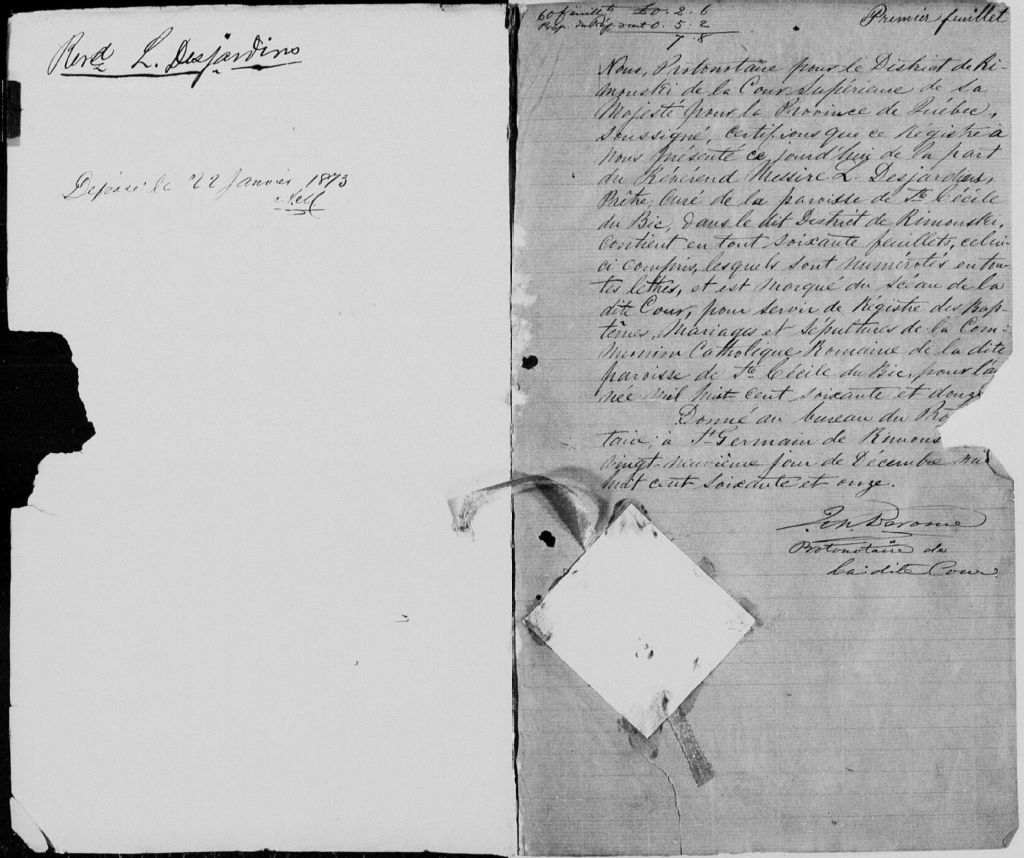 Revd L. Desjardins
Déposé le 22 Janvier 1873
60 feuillets £0. 2. 6
0. 5. 2
7. 8
Premier feuillet
Nous, Protonotaire pour le District de Ri-
mouski de la Cour Supérieure de Sa
Majesté pour la Province de Québec,
soussigné, certifions que ce Régistre à
nous présenté ce jourd'hui de la part
du Révérend Messire L. Desjardins,
Prêtre, Curé de la paroisse de Ste Cécile
du Bic, dans le dit District de Rimouski,
contient en tout soixante feuillets, celui-
ci compris, lesquels sont numérotés en tou-
tes lettres, et est marqué du scéau de la
dite Cour, pour servir de Régistre des Bap-
têmes, Mariages et Sépultures de la Com-
munion Catholique Romaine de la dite
paroisse de Ste Cécile du Bic, pour l'a
née mil huit cent soixante et douz
Donné au bureau du Pro
taire, à St Germain de Rimous
vingt-neuvième jour de Décembre mil
huit cent soixante et onze.
Derome
Protonotaire de
la dite Cour